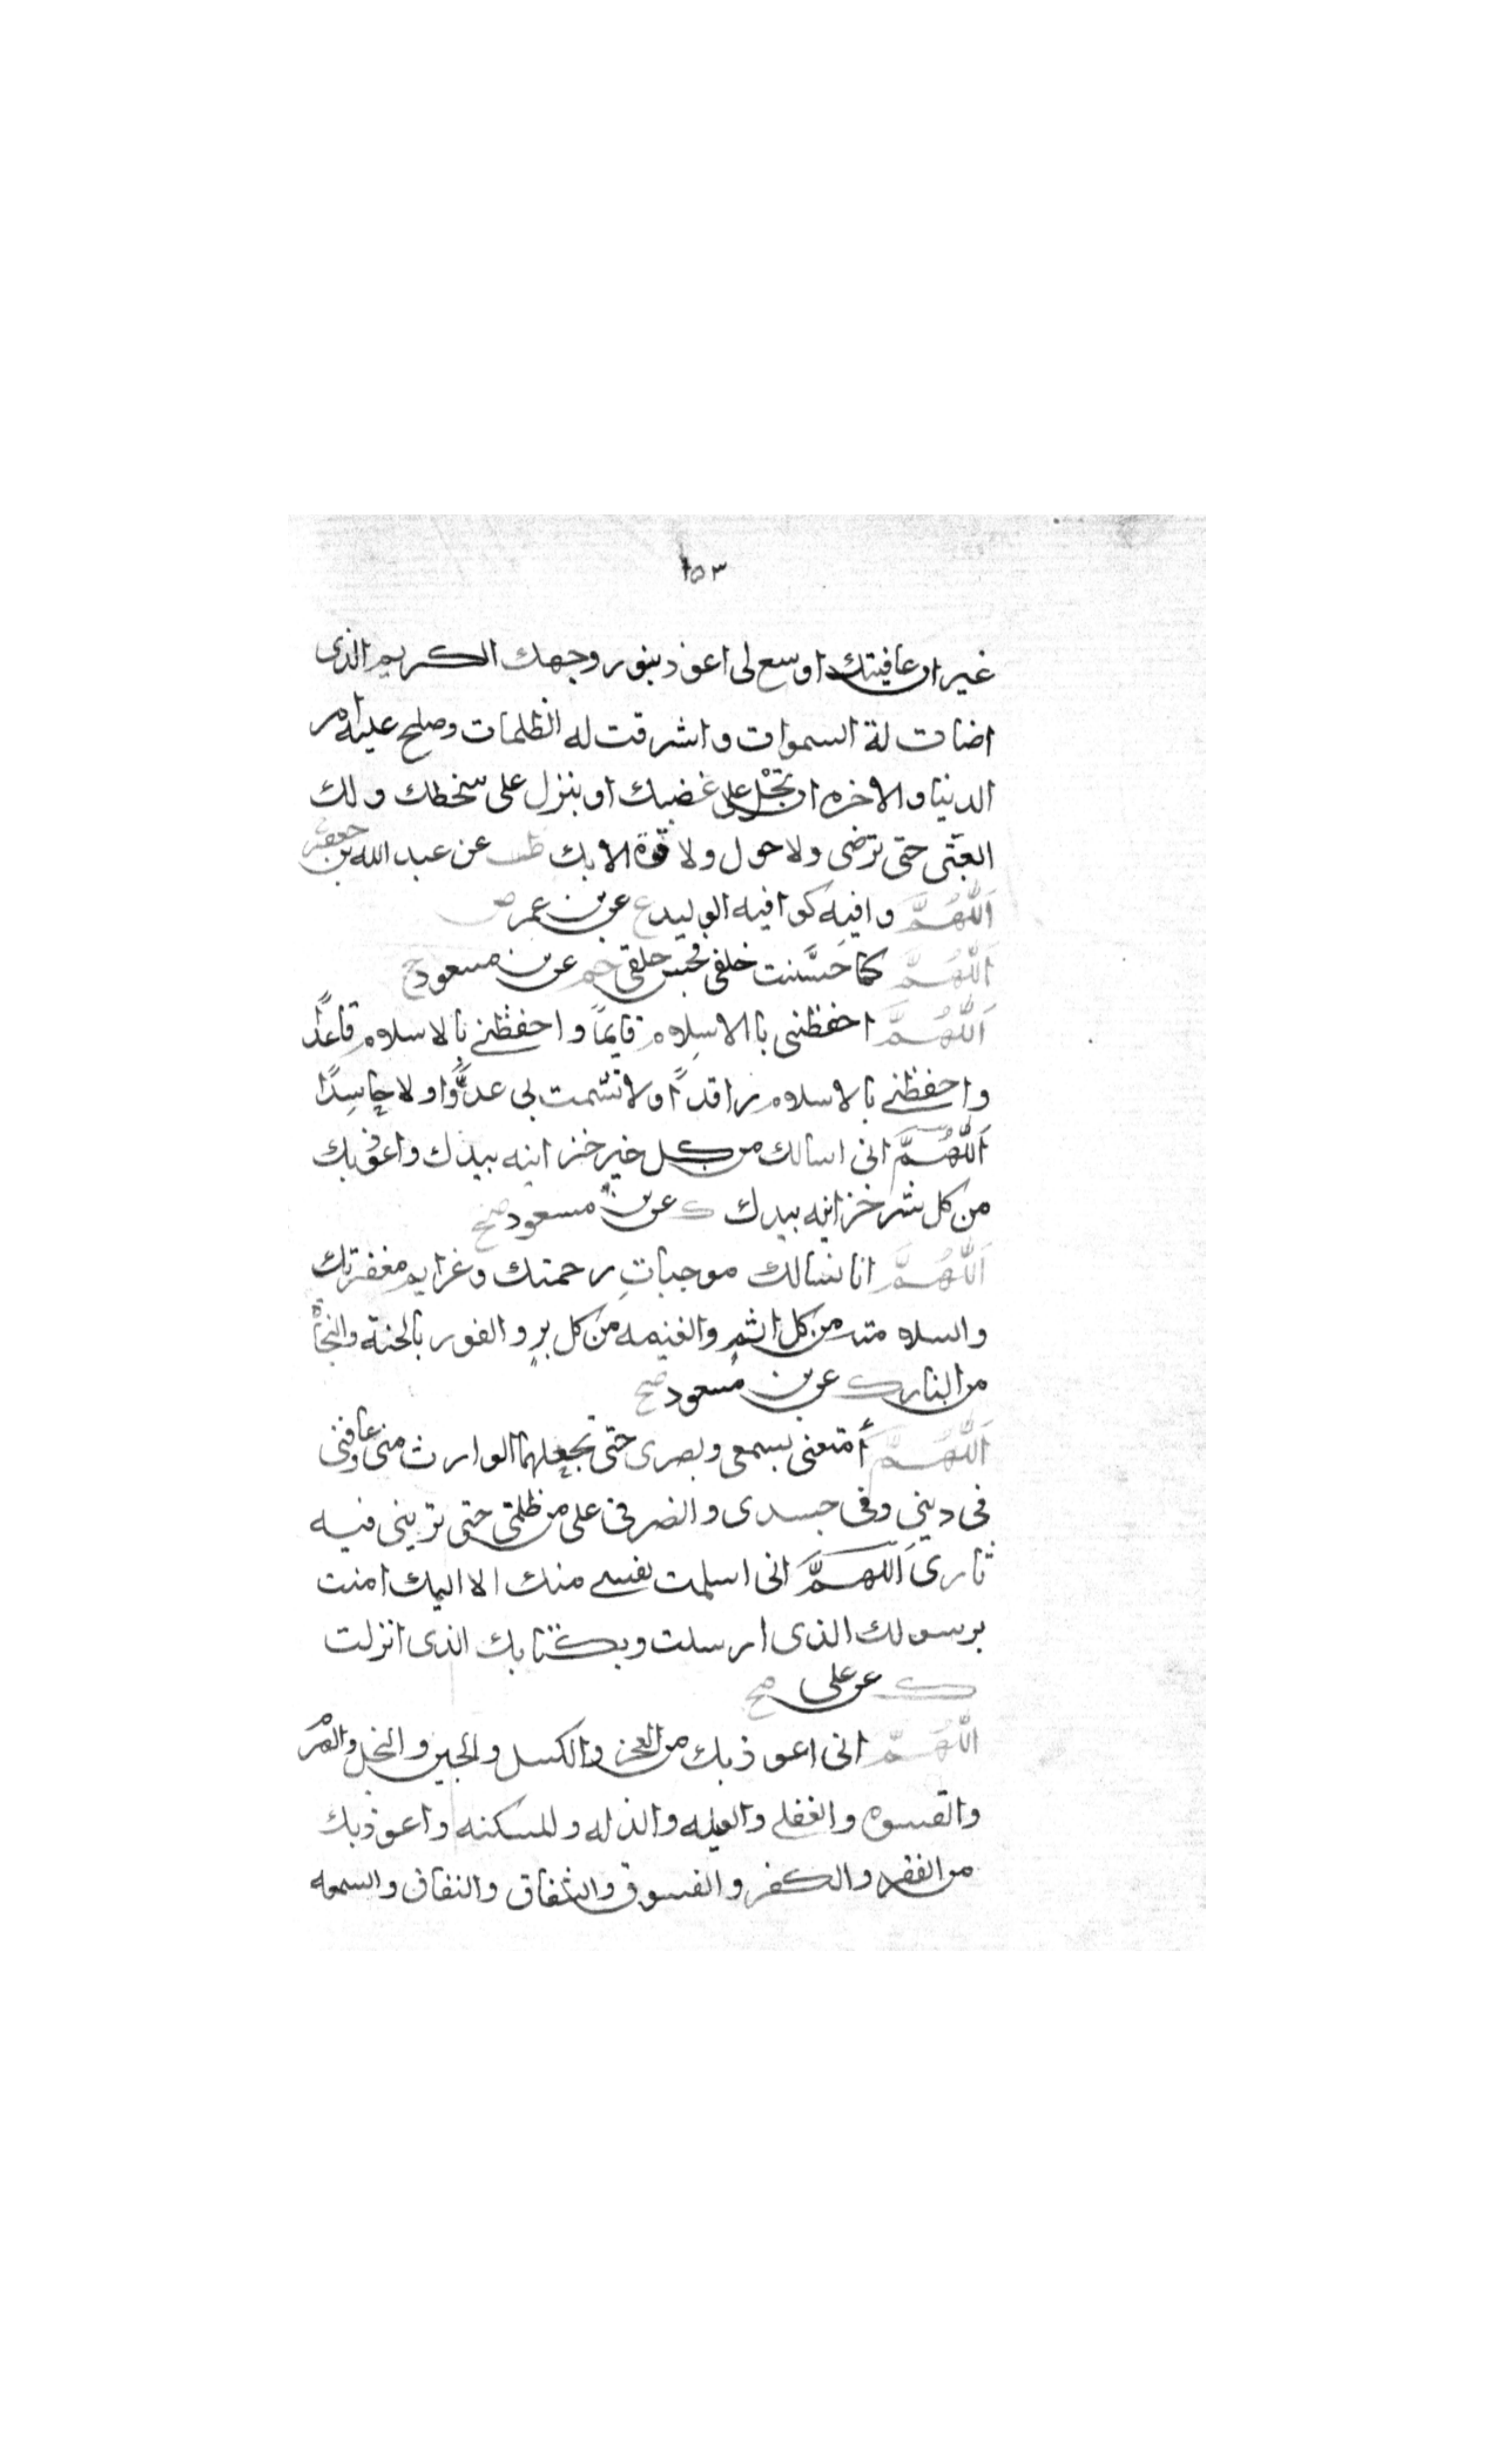 ١٥٣
غير ان عافيتك اوسع لى اعوذ بنور وجهك الكريم الذى
اضات له السموات واشرقت له الظلمات وصلح عليه امر
الدنيا والاخره ان تحل على غضبك او ينزل على سخطك ولك
العتبى حتى ترضى ولا حول ولا قوة الا بك طب عن عبد الله بن جعفر
اللهُمَّ واقيه كواقيه الوليد ع عن بن عمر
اللهُمَّ كما حَسَّنت خلقى فحسن خلقى حم عن بن مسعود
اللهُمَّ احفظنى بالاسلام قايماً واحفظنى بالاسلام قاعداً
واحفظنى بالاسلام راقداً ولا تشمت بى عدوًّا ولا حاسِدًا
اللهُمَّ انى اسالك من كل خير خزاينه بيدك واعوذ بك
من كل شر خزاينه بيدك ك عن بن مسعود صح
اللهُمَّ انا نسالك موجباتِ رحمتك وعزايم مغفرتك
والسلامته من كل اثمٍ والغنيمه من كل برٍ والفوز بالجنة والنجاة
من النار ك عن بن مسعود صح
اللهُمَّ أمتعنى بسمعى وبصرى حتى تجعلهما الوارث منى وعافنى
فى دينى وفى جسدى وانصرنى على من ظلمنى حتى ترينى فيه
ثارى اللهمَّ انى اسلمت نفسى منك الا اليك امنت
برسولك الذى ارسلت وبكتابك الذى انزلت
ك عن على صح
اللهُمَّ انى اعوذ بك من العجز والكسل والجبن والبخل والهرم
والقسوه والغفله والعيله والذله والمسكنه واعوذ بك
من الفقر والكفر والفسوق والشقاق والنفاق والسمعه